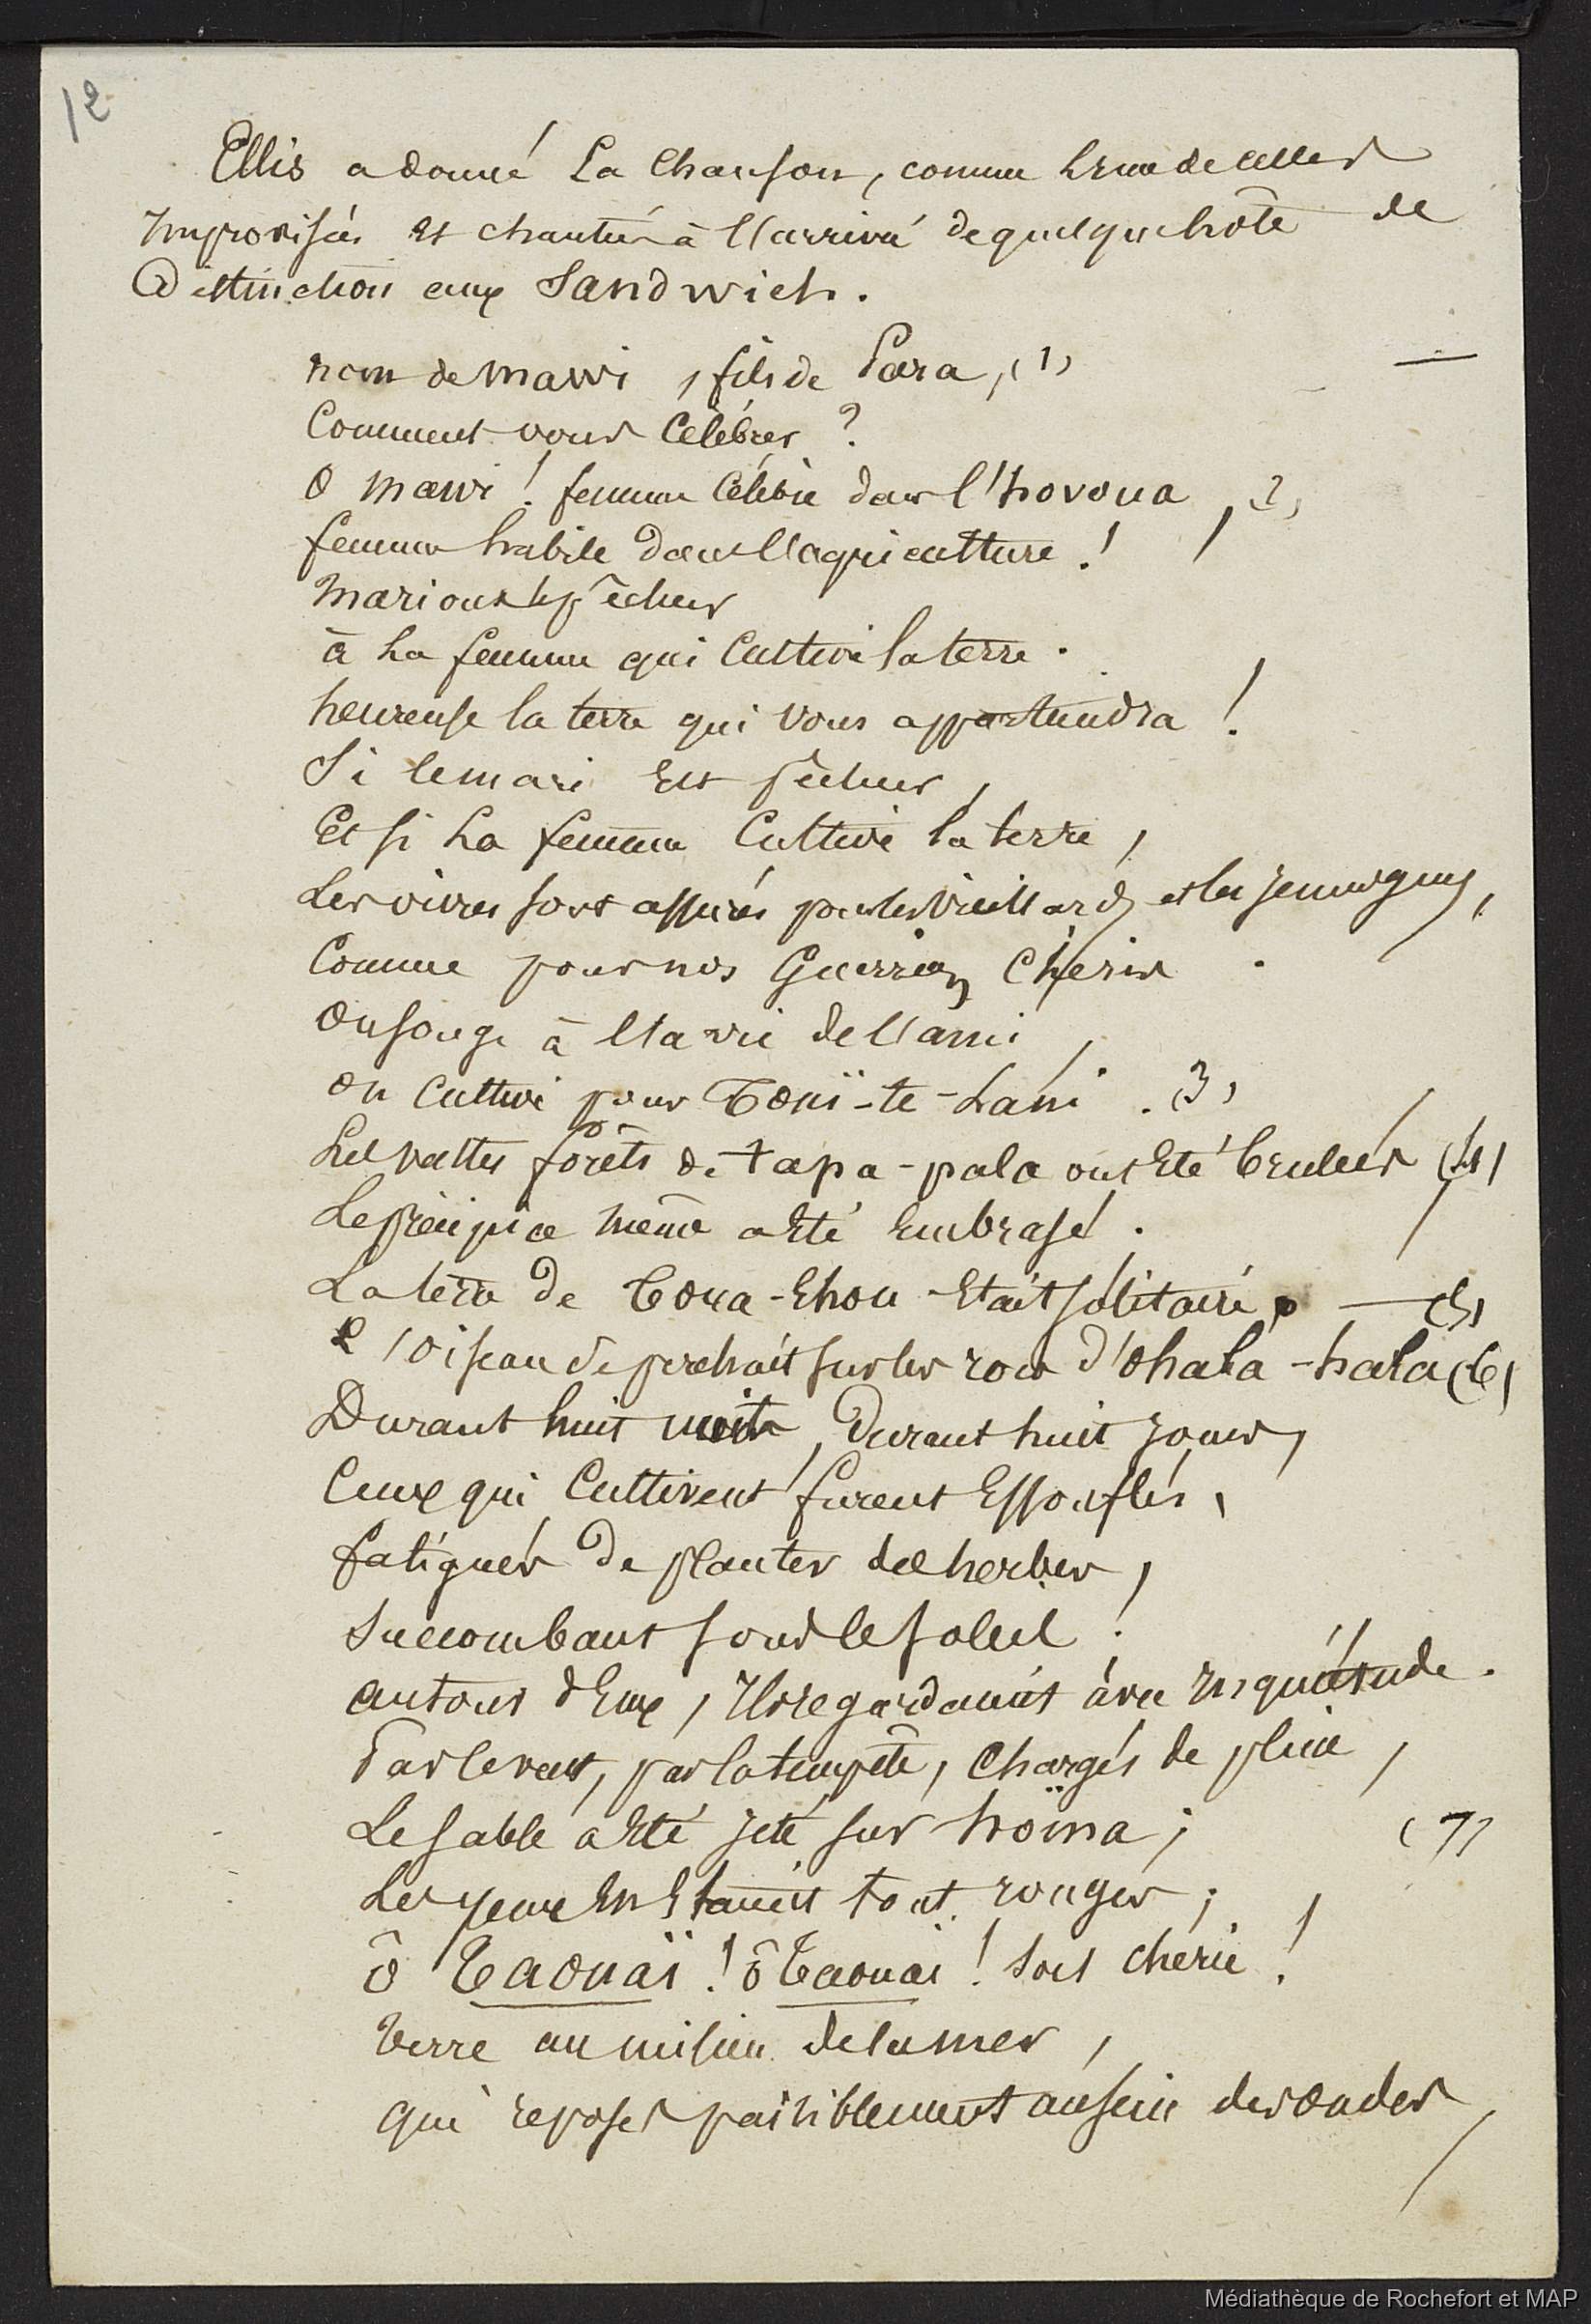 12
Ellis a donné la chanson, comme l'une de celles
improvisées et chantées à l'arrivée de quelque hôte de
Distinction aux Sandwich.
nom de mawi, fils de Para, (1)
Comment vous Célébrer ?
O mawi ! femme Célèbre dans l'hovoua, (2)
femme habile dans l'agriculture !
Marions le pêcheur
à la femme qui Cultive la terre.
heureuse la terre qui vous appartiendra !
Si le mari Est pêcheur,
Et si la femme Cultive la terre,
Les vivres sont assurés pour les vieillards et les jeunes gens,
Comme pour nos Guerriers Chéris.
On songe à la vie de l'ami,
on Cultive pour Toui-te-Lani. (3)
Les vastes forêts de tapa-pala ont Eté brulées (4)
Le précipice même a Eté Embrasé.
La terre de Toua-Ehou Etait solitaire, (5)
L'oiseau se perchait sur les rocs d'ohala-hala (6)
Durant huit nuits, Durant huit jours,
Ceux qui Cultivent furent Essouflés,
fatigués de planter des herbes,
Succombant sous le soleil !
autour d'Eux, Ils regardaient avec Inquiétude.
Par le vent, par la tempête, Chargés de pluie,
Le sable a Eté jeté sur hoïna ; (7)
Les yeux En Etaient tout rouges ;
ô Taouaï ! ô Taouai ! Sois chérie !
Terre au milieu de la mer,
qui reposes paisiblement au sein des ondes,
Médiathèque de Rochefort et MAP